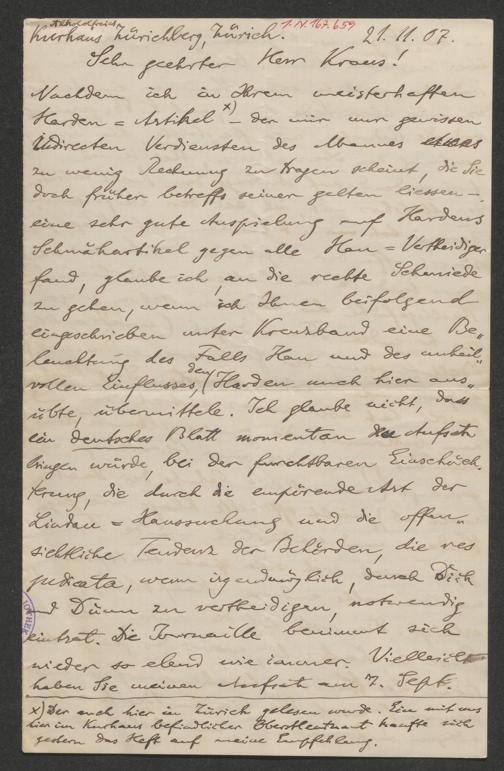 alkoholfreies
Kurhaus Zürichberg, Zürich. I.N. 167.659 21.11.07.
Sehr geehrter Herr Kraus!
Nachdem ich in Ihrem meisterhaften
Harden = Artikel x) – der mir nur gewissen
indirecten Verdiensten des Mannes etwas
zu wenig Rechnung zu tragen scheint, die Sie
doch früher betreffs seiner gelten liessen –,
eine sehr gute Anspielung auf Hardens
Schmähartikel gegen alle Hau = Vertheidiger
fand, glaube ich, an die rechte Schmiede
zu gehen, wenn ich Ihnen beifolgend
eingeschrieben unter Kreuzband eine Be„
leuchtung des Falls Hau und des unheil„
vollen Einflusses, den Harden auch hier aus„
übte, übermittele. Ich glaube nicht, dass
ein deutsches Blatt momentan den Aufsatz
bringen würde, bei der furchtbaren Einschüch„
terung, die durch die empörende Art der
Lindau = Haussuchung und die offen„
sichtliche Tendenz der Behörden, die res
judicata, wenn irgendmöglich, durch Dick
und Dünn zu vertheidigen, notwendig
eintrat. Die Journaille benimmt sich
wieder so elend wie immer. Vielleicht
haben Sie meinen Aufsatz am 7. Sept.
x) Der auch hier in Zürich gelesen wurde. Ein mit uns
hier im Kurhaus befindlicher Oberstleutnant kaufte sich
gestern das Heft auf meine Empfehlung.